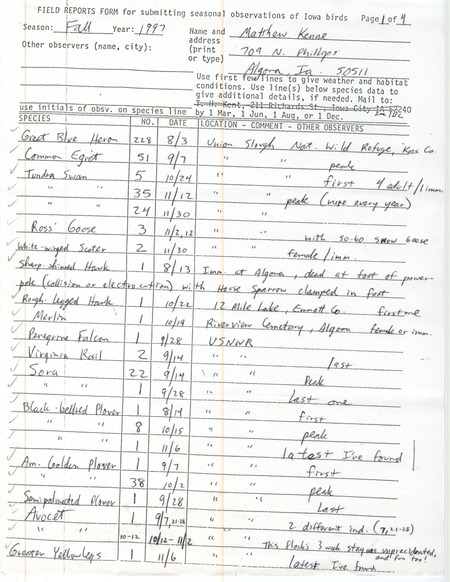 FIELD REPORTS FORM for submitting seasonal observations of Iowa birds Page 1 of 4
Season: Fall Year: 1997 Name and address (print or type) Matthew Kenne
709 N. Phillips
Algona, Ia. 50511
Other observers (name, city):
Use first few lines to give weather and habitat
conditions. Use line(s) below species data to
give additional details, if needed. Mail to:
T. H. Kent, 211 Richards St., Iowa City IA 52240
use initials of obsv. on species line by 1 Mar, 1 Jun, 1 Aug, or 1 Dec.
SPECIES NO. DATE LOCATION - COMMENT - OTHER OBSERVERS
Great Blue Heron 228 8/3 Union Slough Nat. Wild Refuge, Koss. Co.
Common Egret 51 9/7 " " peak
Tundra Swan 5 10/24 " " first 4 adult/1 imm.
35 11/12 " " peak (more every year)
24 11/30 " "
Ross' Goose 3 11/2,12 " " with 50-60 snow geese
White-winged Scoter 2 11/30 " " female/imm.
Sharp-shinned Hawk 1 8/13 Imm. at Algona, dead at foot of power-
pole (collision or electrocution) with House Sparrow clamped in foot
Rough-legged Hawk 1 10/22 12 Mile Lake, Emmett Co. first one
Merlin 1 10/19 Riverview Cemetery, Algona female or imm.
Peregrine Falcon 1 9/28 USNWR
Virginia Rail 2 9/14 " " last
Sora 22 9/14 " " Peak
" " 1 9/28 " " last one
Black-bellied Plover 1 8/14 " " first
" " 8 10/15 " " peak
" " 1 11/6 " " latest I've found
Am. Golden Plover 1 9/7 " " first
38 10/2 " " peak
Semipalmated Plover 1 9/28 " " Last
Avocet 1 9/7,21-28 " " 2 different ind. (7,21-28)
" " 10-12 10/12-11/2 " " This flock's 3 week stay was unprecidented, and fun too!
Greater Yellowlegs 1 11/6 " " latest I've found